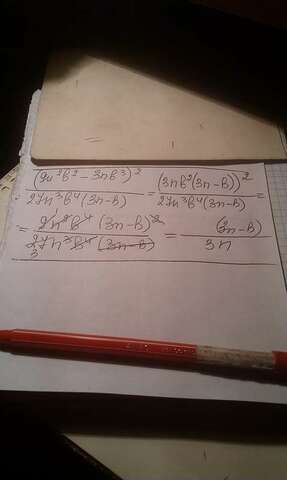 (9n²b² - 3nb³)² / 27n³b⁴(3n-b) = (3nb²(3n-b))² / 27n³b⁴(3n-b) =
= 9n²b⁴(3n-b)² / 27n³b⁴(3n-b) = (3n-b) / 3n
3